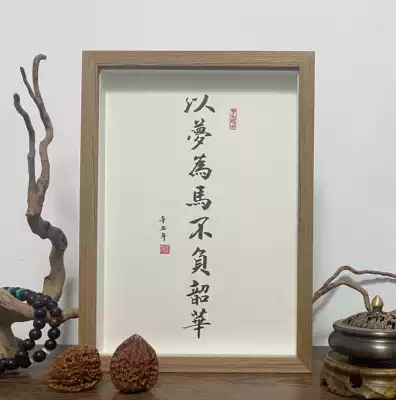 以夢為馬不負韶華
辛丑年